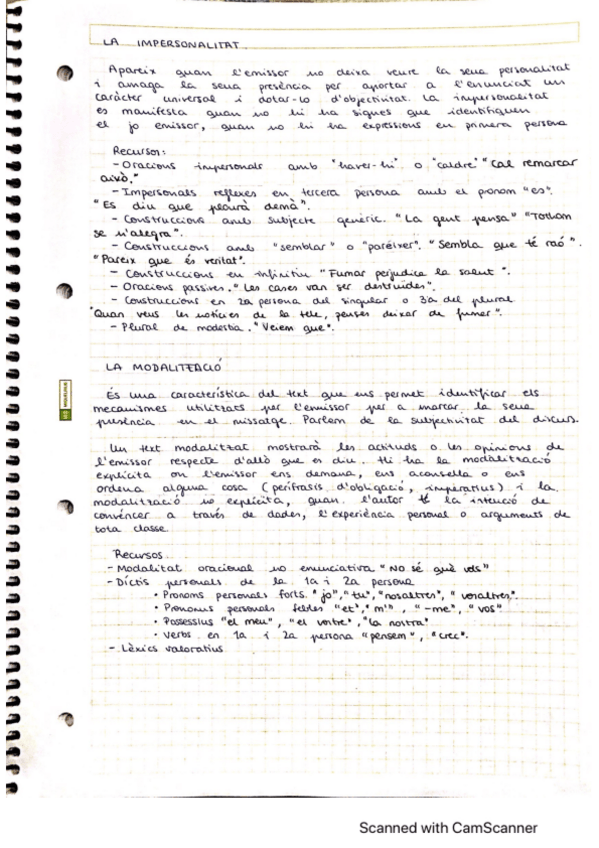 LA IMPERSONALITAT
Apareix quan l'emissor no deixa veure la seua personalitat
i amaga la seua presència per aportar a l'enunciat un
caràcter universal i dotar-lo d'objectivitat. La impersonalitat
es manifesta quan no hi ha signes que identifiquen
el jo emissor, quan no hi ha expressions en primera persona
Recursos:
- Oracions impersonals amb "haver-hi" o "caldre" "Cal remarcar
això."
- Impersonals reflexes en tercera persona amb el pronom "es".
"Es diu que plourà demà".
- Construccions amb subjecte genèric. "La gent pensa" "Tothom
se n'alegra".
- Construccions amb "semblar" o "paréixer". "Sembla que té raó".
"Pareix que és veritat".
- Construccions en infinitiu "Fumar perjudica la salut".
- Oracions passives. "Les cases van ser destruïdes".
- Construccions en 2a persona del singular o 3a del plural
"Quan veus les notícies de la tele, penses deixar de fumar".
- Plural de modestia. "Veiem que".
LA MODALITZACIÓ
És una característica del text que ens permet identificar els
mecanismes utilitzats per l'emissor per a marcar la seua
presència en el missatge. Parlem de la subjectivitat del discurs.
Un text modalitzat mostrarà les actituds o les opinions de
l'emissor respecte d'allò que es diu. Hi ha la modalització
explícita on l'emissor ens demana, ens aconsella o ens
ordena alguna cosa (perífrasis d'obligació, imperatius) i la
modalització no explícita, quan l'autor té la intenció de
convèncer a través de dades, l'experiència personal o arguments de
tota classe.
Recursos.
- Modalitat oracional no enunciativa "No sé què vols"
- Díctis personals de la 1a i 2a persona
• Pronoms personals forts. "jo", "tu", "nosaltres", "vosaltres".
• Pronoms personals febles "et", "m'", "-me", "vos"
• Possessius "el meu", "el vostre", "la nostra"
• Verbs en 1a i 2a persona "pensem", "crec".
- Lèxics valoratius
Scanned with CamScanner